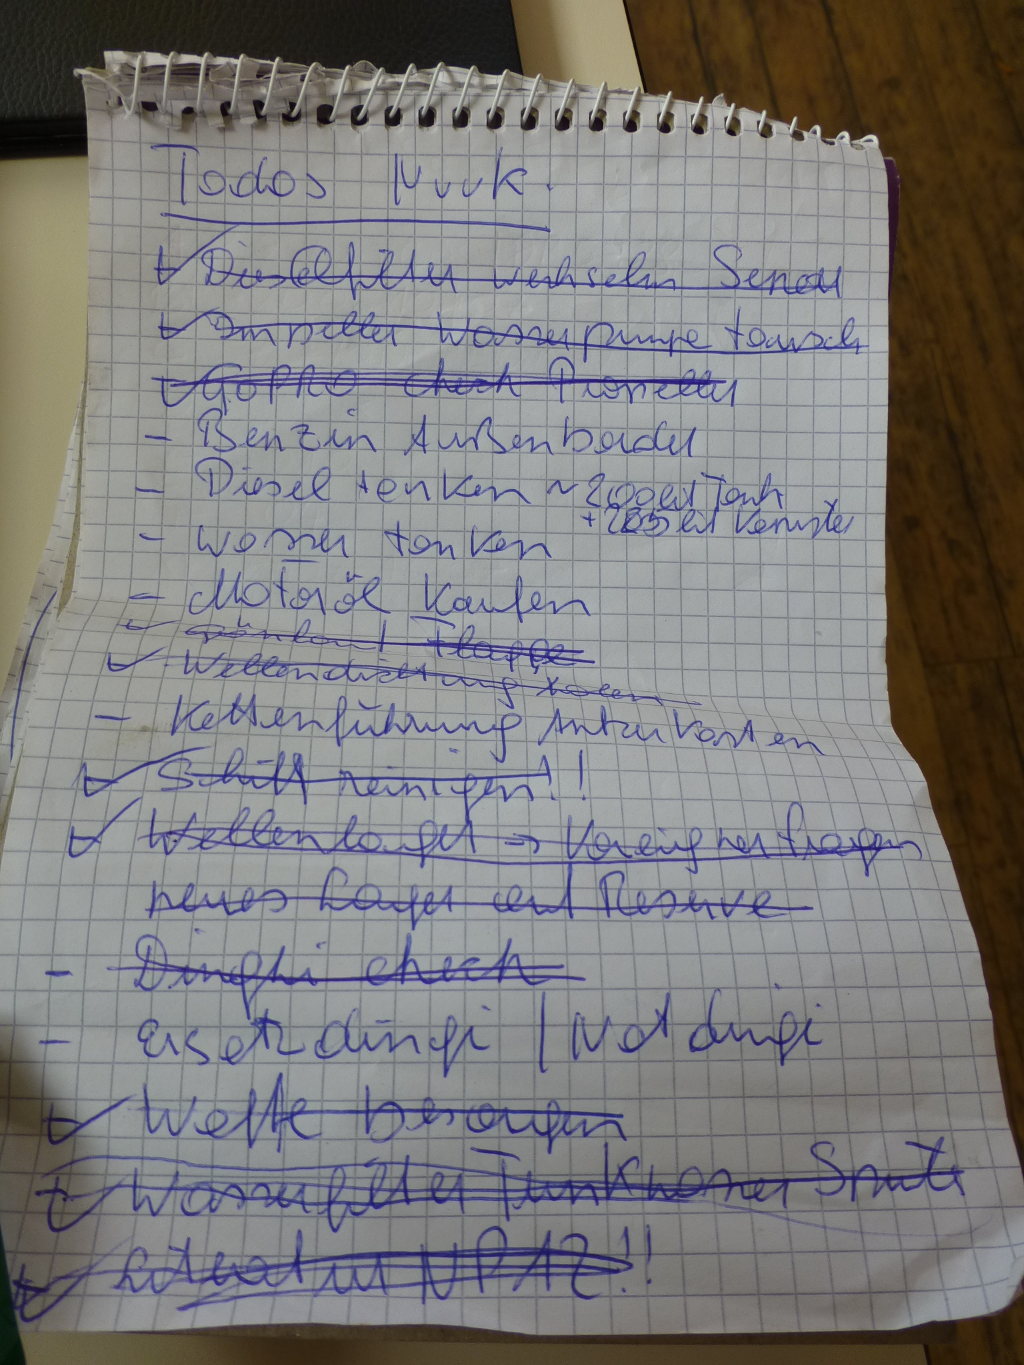 Todos Nuuk.
✓ Dieselfilter wechseln Senar
✓ Impeller Wasserpumpe tausch
✓ GoPRO check Propeller
- Benzin Außenborder
- Diesel tanken ~ Tank
+ Kanister
- Wasser tanken
- Motoröl Kaufen
✓ Grönland Flagge
✓ Wellendichtung
- Kettenführung Ankerkasten
✓ Schiff reinigen!!
✓ Wellenlager → Voreigner fragen
neues Lager auf Reserve
- Dinghi check
- Ersatzdingi / Notdingi
✓ Waffe besorgen
✓ Wasserfilter Trinkwasser
✓ Literatur NPAZ!!